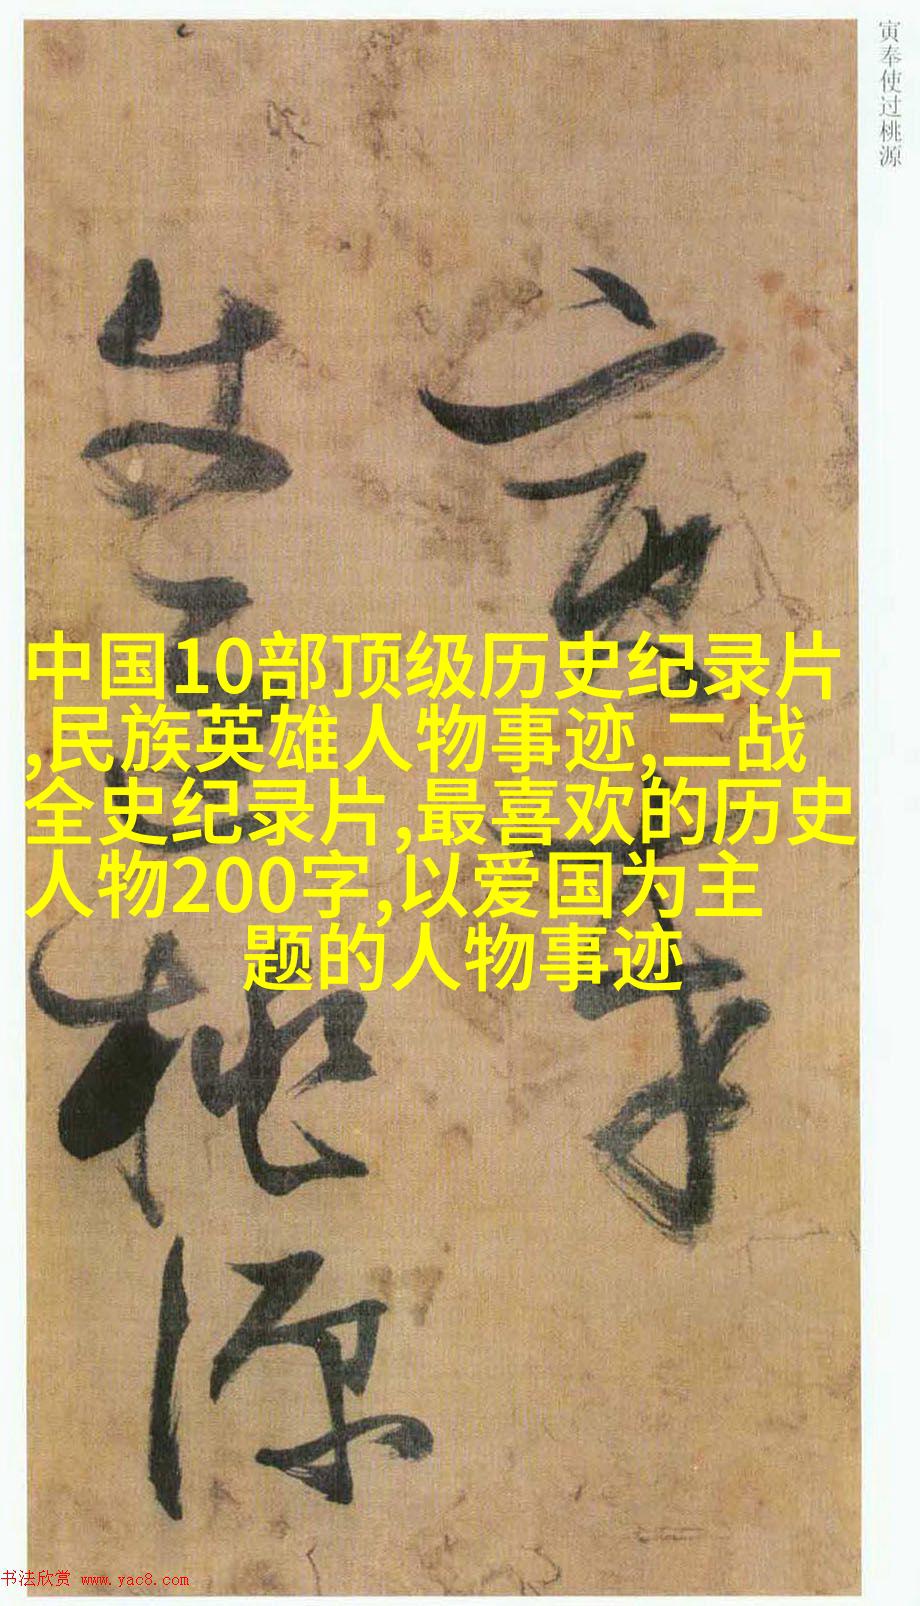 寅奉使过桃源
寅奉
使过桃源
中国10部顶级历史纪录片
,民族英雄人物事迹,二战
全史纪录片,最喜欢的历史
人物200字,以爱国为主
题的人物事迹
书法欣赏 www.yac8.com